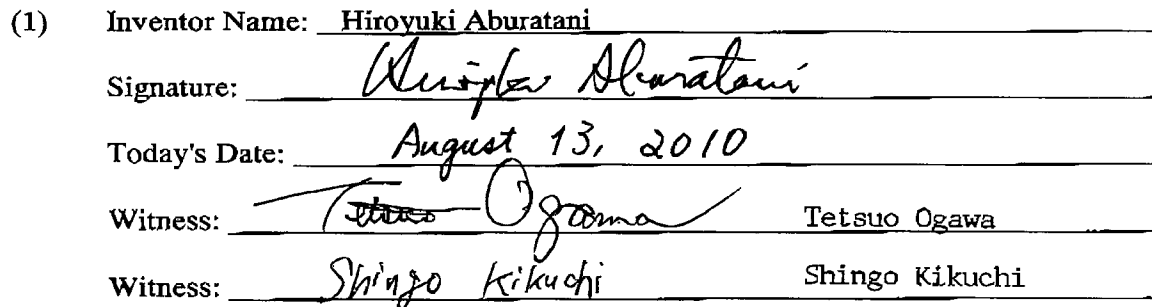 (1) Inventor Name: Hiroyuki Aburatani
Signature: Hiroyuki Aburatani
Today's Date: August 13, 2010
Witness: Tetsuo Ogawa Tetsuo Ogawa
Witness: Shingo Kikuchi Shingo Kikuchi